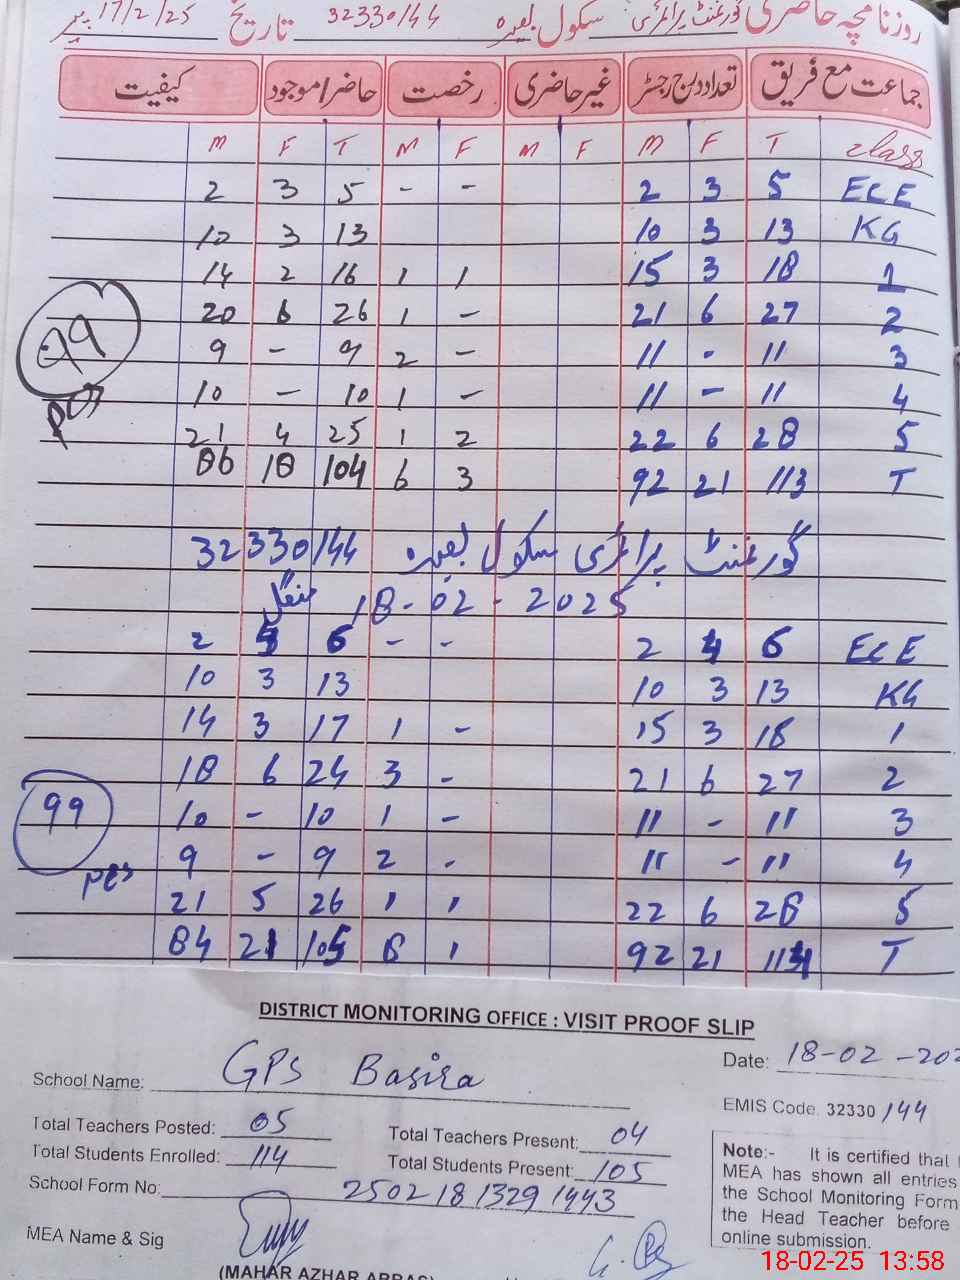 روزنامچہ حاضری گورنمنٹ پرائمری سکول بصیرہ 32330/44 تاریخ 17/2/25 پیر
جماعت مع فریق تعداد درج رجسٹر غیر حاضری رخصت حاضر/موجود کیفیت
M F T M F M F M F T Class
2 3 5 - - 2 3 5 ECE
10 3 13 10 3 13 KG
14 2 16 1 1 15 3 18 1
20 6 26 1 - 21 6 27 2
99
9 - 9 2 - 11 - 11 3
10 - 10 1 - 11 - 11 4
21 4 25 1 2 22 6 28 5
86 18 104 6 3 92 21 113 T
گورنمنٹ پرائمری سکول بصیرہ 32330/44
18-02-2025 منگل
2 4 6 - - 2 4 6 ECE
10 3 13 10 3 13 KG
14 3 17 1 - 15 3 18 1
18 6 24 3 - 21 6 27 2
99
10 - 10 1 - 11 - 11 3
9 - 9 2 - 11 - 11 4
21 5 26 1 1 22 6 28 5
84 21 105 8 1 92 21 114 T
DISTRICT MONITORING OFFICE : VISIT PROOF SLIP
Date: 18-02-202
School Name: GPS Basira
EMIS Code. 32330/44
Total Teachers Posted: 05
Total Teachers Present: 04
Total Students Enrolled: 114
Total Students Present: 105
School Form No: 25021813291443
Note:- It is certified that
MEA has shown all entries
the School Monitoring Form
the Head Teacher before
online submission.
MEA Name & Sig
(MAHAR AZHAR ABBAS)
18-02-25 13:58